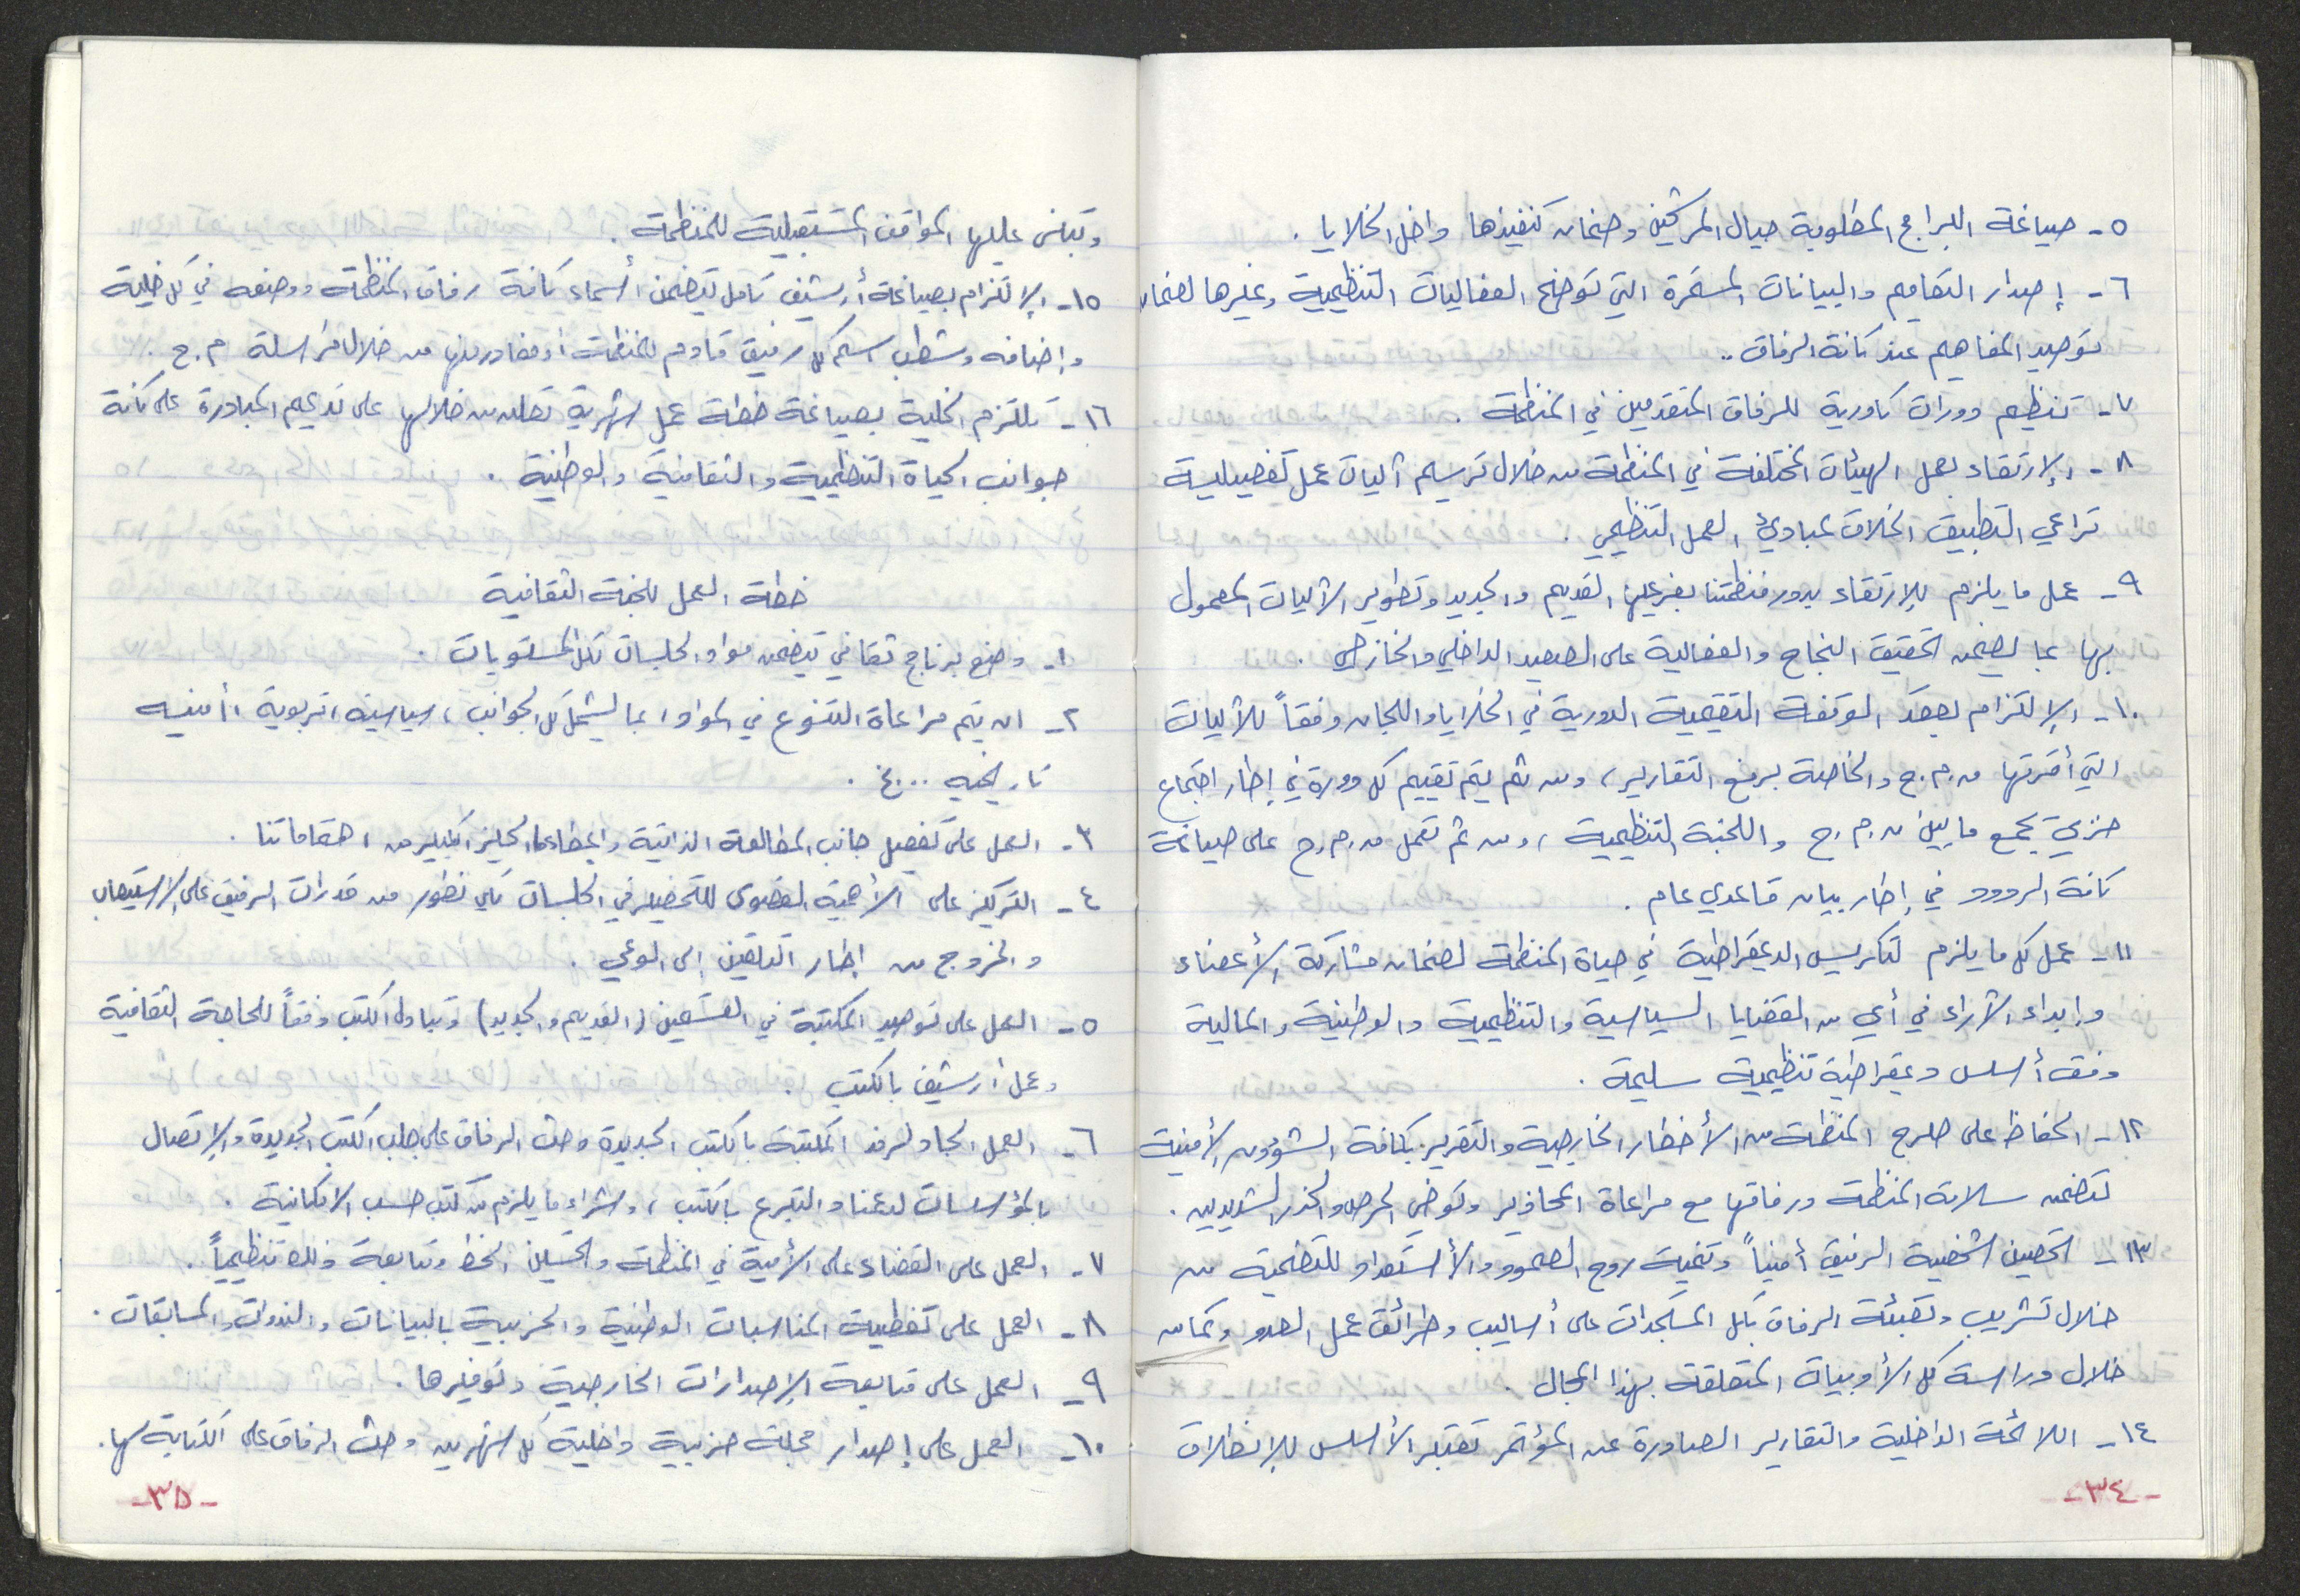 ٥- صياغة البرامج المطلوبة حيال المرشحين وضمان تنفيذها داخل الخلايا .
٦- إصدار التعاميم والبيانات المستمرة التي توضح الفعاليات التنظيمية وغيرها لضمان
توحيد المفاهيم عند كافة الرفاق ..
٧- تنظيم دورات كادورية للرفاق المتقدمين في المنظمة .
٨- الإرتقاء بعمل الهيئات المختلفة في المنظمة من خلال ترسيم آليات عمل تفصيلية
تراعي التطبيق الخلاق لمبادئ العمل التنظيمي .
٩- عمل ما يلزم للإرتقاء بدور منظمتنا بفرعيها القديم والجديد وتطوير الآليات المعمول
بها بما يضمن تحقيق النجاح والفعالية على الصعيد الداخلي والخارجي .
١٠- الإلتزام بعقد الوقفة التقييمية الدورية في الخلايا واللجان وفقاً للآليات
التي أقرتها م.م.ح والخاصة برفع التقارير، ومن ثم يتم تقييم كل دورة في إطار اجتماع
حزبي يجمع ما بين م.م.ح واللجنة التنظيمية، ومن ثم تعمل م.م.ح على صياغة
كافة الردود في إطار بيان قاعدي عام .
١١- عمل كل ما يلزم لتكريس الديمقراطية في حياة المنظمة لضمان مشاركة الأعضاء
وإبداء الآراء في أي من القضايا السياسية والتنظيمية والوطنية والمالية
وفق أسس ديمقراطية تنظيمية سليمة .
١٢- الحفاظ على صلرح المنظمة من الأخطار الخارجية والتقرير بكافة الشؤون الأمنية
لتضمن سلامة المنظمة ورفاقها مع مراعاة المحاذير وتوخي الحرص والحذر الشديدين .
١٣- تحصين شخصية الرفيق أمنياً وتنمية روح الصمود والأستعداد للتضحية من
خلال تشريب وتعبئة الرفاق بكل المستجدات على أساليب وطرائق عمل العدو وكما من
خلال دراسة كل الأدبيات المتعلقة بهذا المجال .
١٤- اللائحة الداخلية والتقارير الصادرة عن المؤتمر تعتبر الأسس للإنطلاق
-٣٤-
وتبنى عليها المواقف المستقبلية للمنظمة .
١٥- الإلتزام بصياغة أرشيف كامل يتضمن أسماء كافة رفاق المنظمة ووضعه في كل خلية
وإضافة وشطب اسم كل رفيق قادم للمنظمة أو مغادر منها من خلال مراسلة م.ح .
١٦- تلتزم الخلية بصياغة خطة عمل شهرية تعمل من خلالها على تدعيم المبادرة على كافة
جوانب الحياة التنظيمية والثقافية والوطنية .
خطة العمل للجنة الثقافية
١- وضع برنامج ثقافي يتضمن مواد الجلسات لكل المستويات .
٢- ان يتم مراعاة التنوع في المواد، بما يشمل كل الجوانب، سياسية، تربوية، أمنيه
تاريخيه ... الخ .
٣- العمل على تفعيل جانب المطالعة الذاتية وإعطاءها الحيز الكبير من اهتماماتنا .
٤- التركيز على الأهمية القصوى للتحضير في الجلسات لكي نطور من قدرات الرفيق على الاستيعاب
والخروج من إطار التلقين إلى الوعي .
٥- العمل على توحيد المكتبة في القسمين (القديم والجديد) وتبادل الكتب وفقاً للحاجة الثقافية
وعمل أرشيف بالكتب .
٦- العمل الجاد لرفد المكتبة بالكتب الجديدة وحث الرفاق على جلب الكتب الجديدة والإتصال
بالمؤسسات لدعمنا والتبرع بالكتب، وشراء ما يلزم من كتب حسب الامكانية .
٧- العمل على القضاء على الأمية في المنظمة وتحسين الخط ومتابعة ذلك تنظيمياً .
٨- العمل على تغطية المناسبات الوطنية والحزبية بالبيانات والندوات والمسابقات .
٩- العمل على متابعة الإصدارات الخارجية وتوفيرها .
١٠- العمل على إصدار مجلة حزبية داخلية كل شهرين وحث الرفاق على الكتابة لها .
-٣٥-